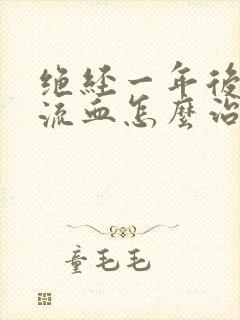 绝经一年後
流血怎麼治
童毛毛